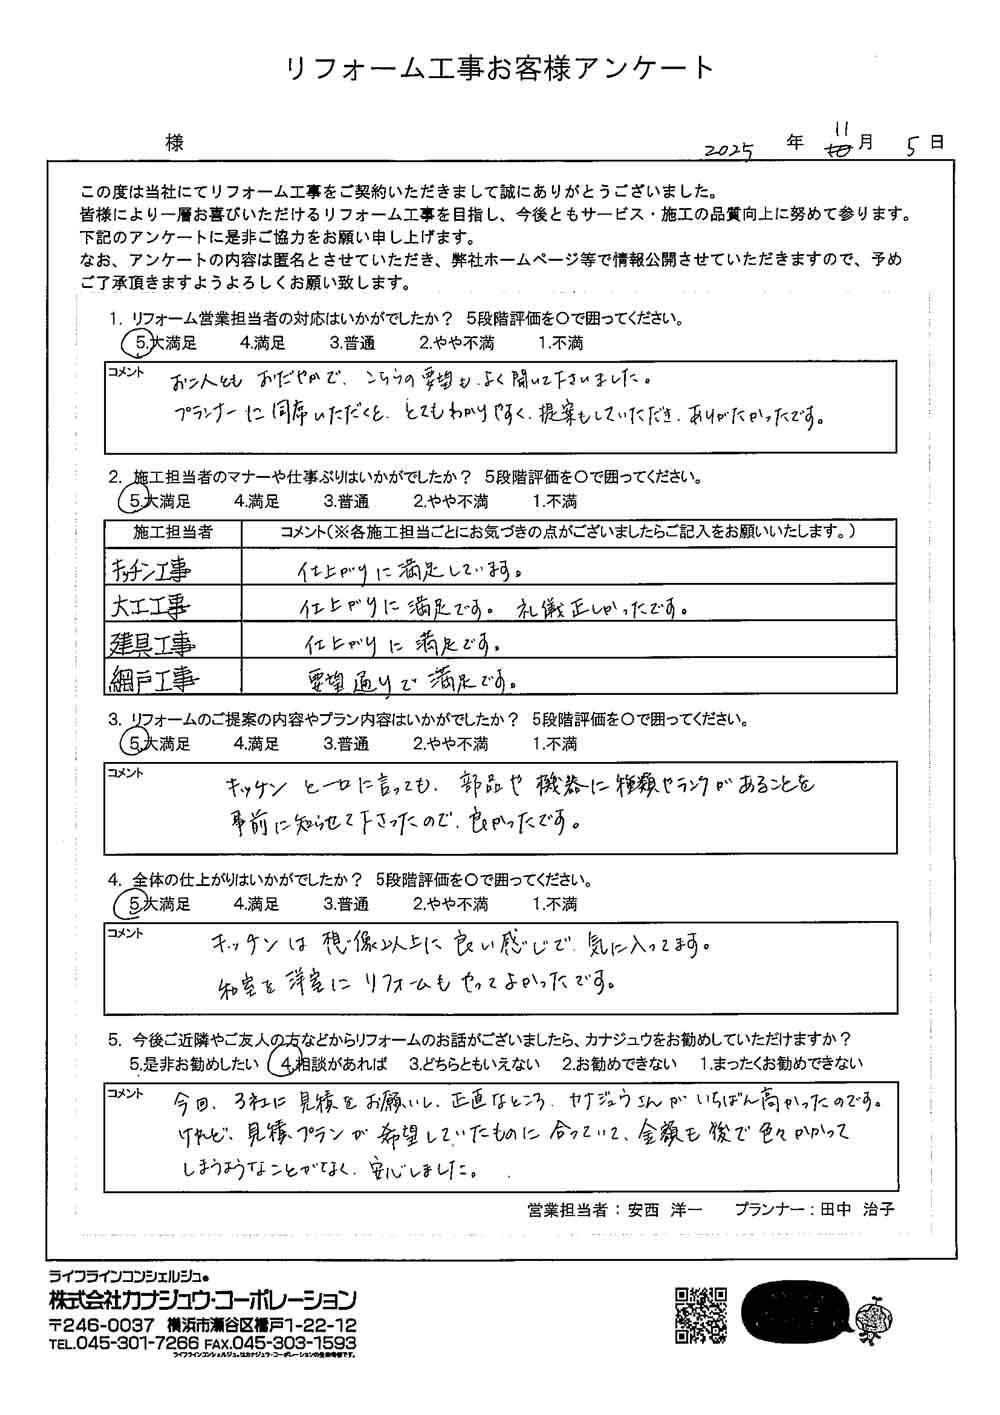 リフォーム工事お客様アンケート
様 2025 年 11月 5日
この度は当社にてリフォーム工事をご契約いただきまして誠にありがとうございました。
皆様により一層お喜びいただけるリフォーム工事を目指し、今後ともサービス・施工の品質向上に努めて参ります。
下記のアンケートに是非ご協力をお願い申し上げます。
なお、アンケートの内容は匿名とさせていただき、弊社ホームページ等で情報公開させていただきますので、予め
ご了承頂きますようよろしくお願い致します。
1. リフォーム営業担当者の対応はいかがでしたか? 5段階評価を○で囲ってください。
5.大満足 4.満足 3.普通 2.やや不満 1.不満
コメント
お二人とも おだやかで、こちらの要望も、よく聞いて下さいました。
プランナーに同席いただくと、とてもわかりやすく、提案もしていただき、ありがたかったです。
2. 施工担当者のマナーや仕事ぶりはいかがでしたか? 5段階評価を○で囲ってください。
5.大満足 4.満足 3.普通 2.やや不満 1.不満
施工担当者 コメント(※各施工担当ごとにお気づきの点がございましたらご記入をお願いいたします。)
キッチン工事 仕上がりに満足しています。
大工工事 仕上がりに満足です。礼儀正しかったです。
建具工事 仕上がりに満足です。
網戸工事 要望通りで満足です。
3. リフォームのご提案の内容やプラン内容はいかがでしたか? 5段階評価を○で囲ってください。
5.大満足 4.満足 3.普通 2.やや不満 1.不満
コメント
キッチンと一口に言っても、部品や機器に種類やランクがあることを
事前に知らせて下さったので、良かったです。
4. 全体の仕上がりはいかがでしたか? 5段階評価を○で囲ってください。
5.大満足 4.満足 3.普通 2.やや不満 1.不満
コメント
キッチンは想像以上に良い感じで、気に入ってます。
和室を洋室にリフォームもやってよかったです。
5. 今後ご近隣やご友人の方などからリフォームのお話がございましたら、カナジュウをお勧めしていただけますか?
5.是非お勧めしたい 4.相談があれば 3.どちらともいえない 2.お勧めできない 1.まったくお勧めできない
コメント
今回、3社に見積をお願いし、正直なところ、カナジュウさんがいちばん高かったのです。
けれど、見積、プランが希望していたものに合っていて、金額も後で色々かかって
しまうようなことがなく、安心しました。
営業担当者:安西 洋一 プランナー:田中 治子
ライフラインコンシェルジュ。
株式会社カナジュウ・コーポレーション
〒246-0037 横浜市瀬谷区橋戸1-22-12
TEL.045-301-7266 FAX.045-303-1593
ライフラインコンシェルジュ。はカナジュウ・コーポレーションの登録商標です。